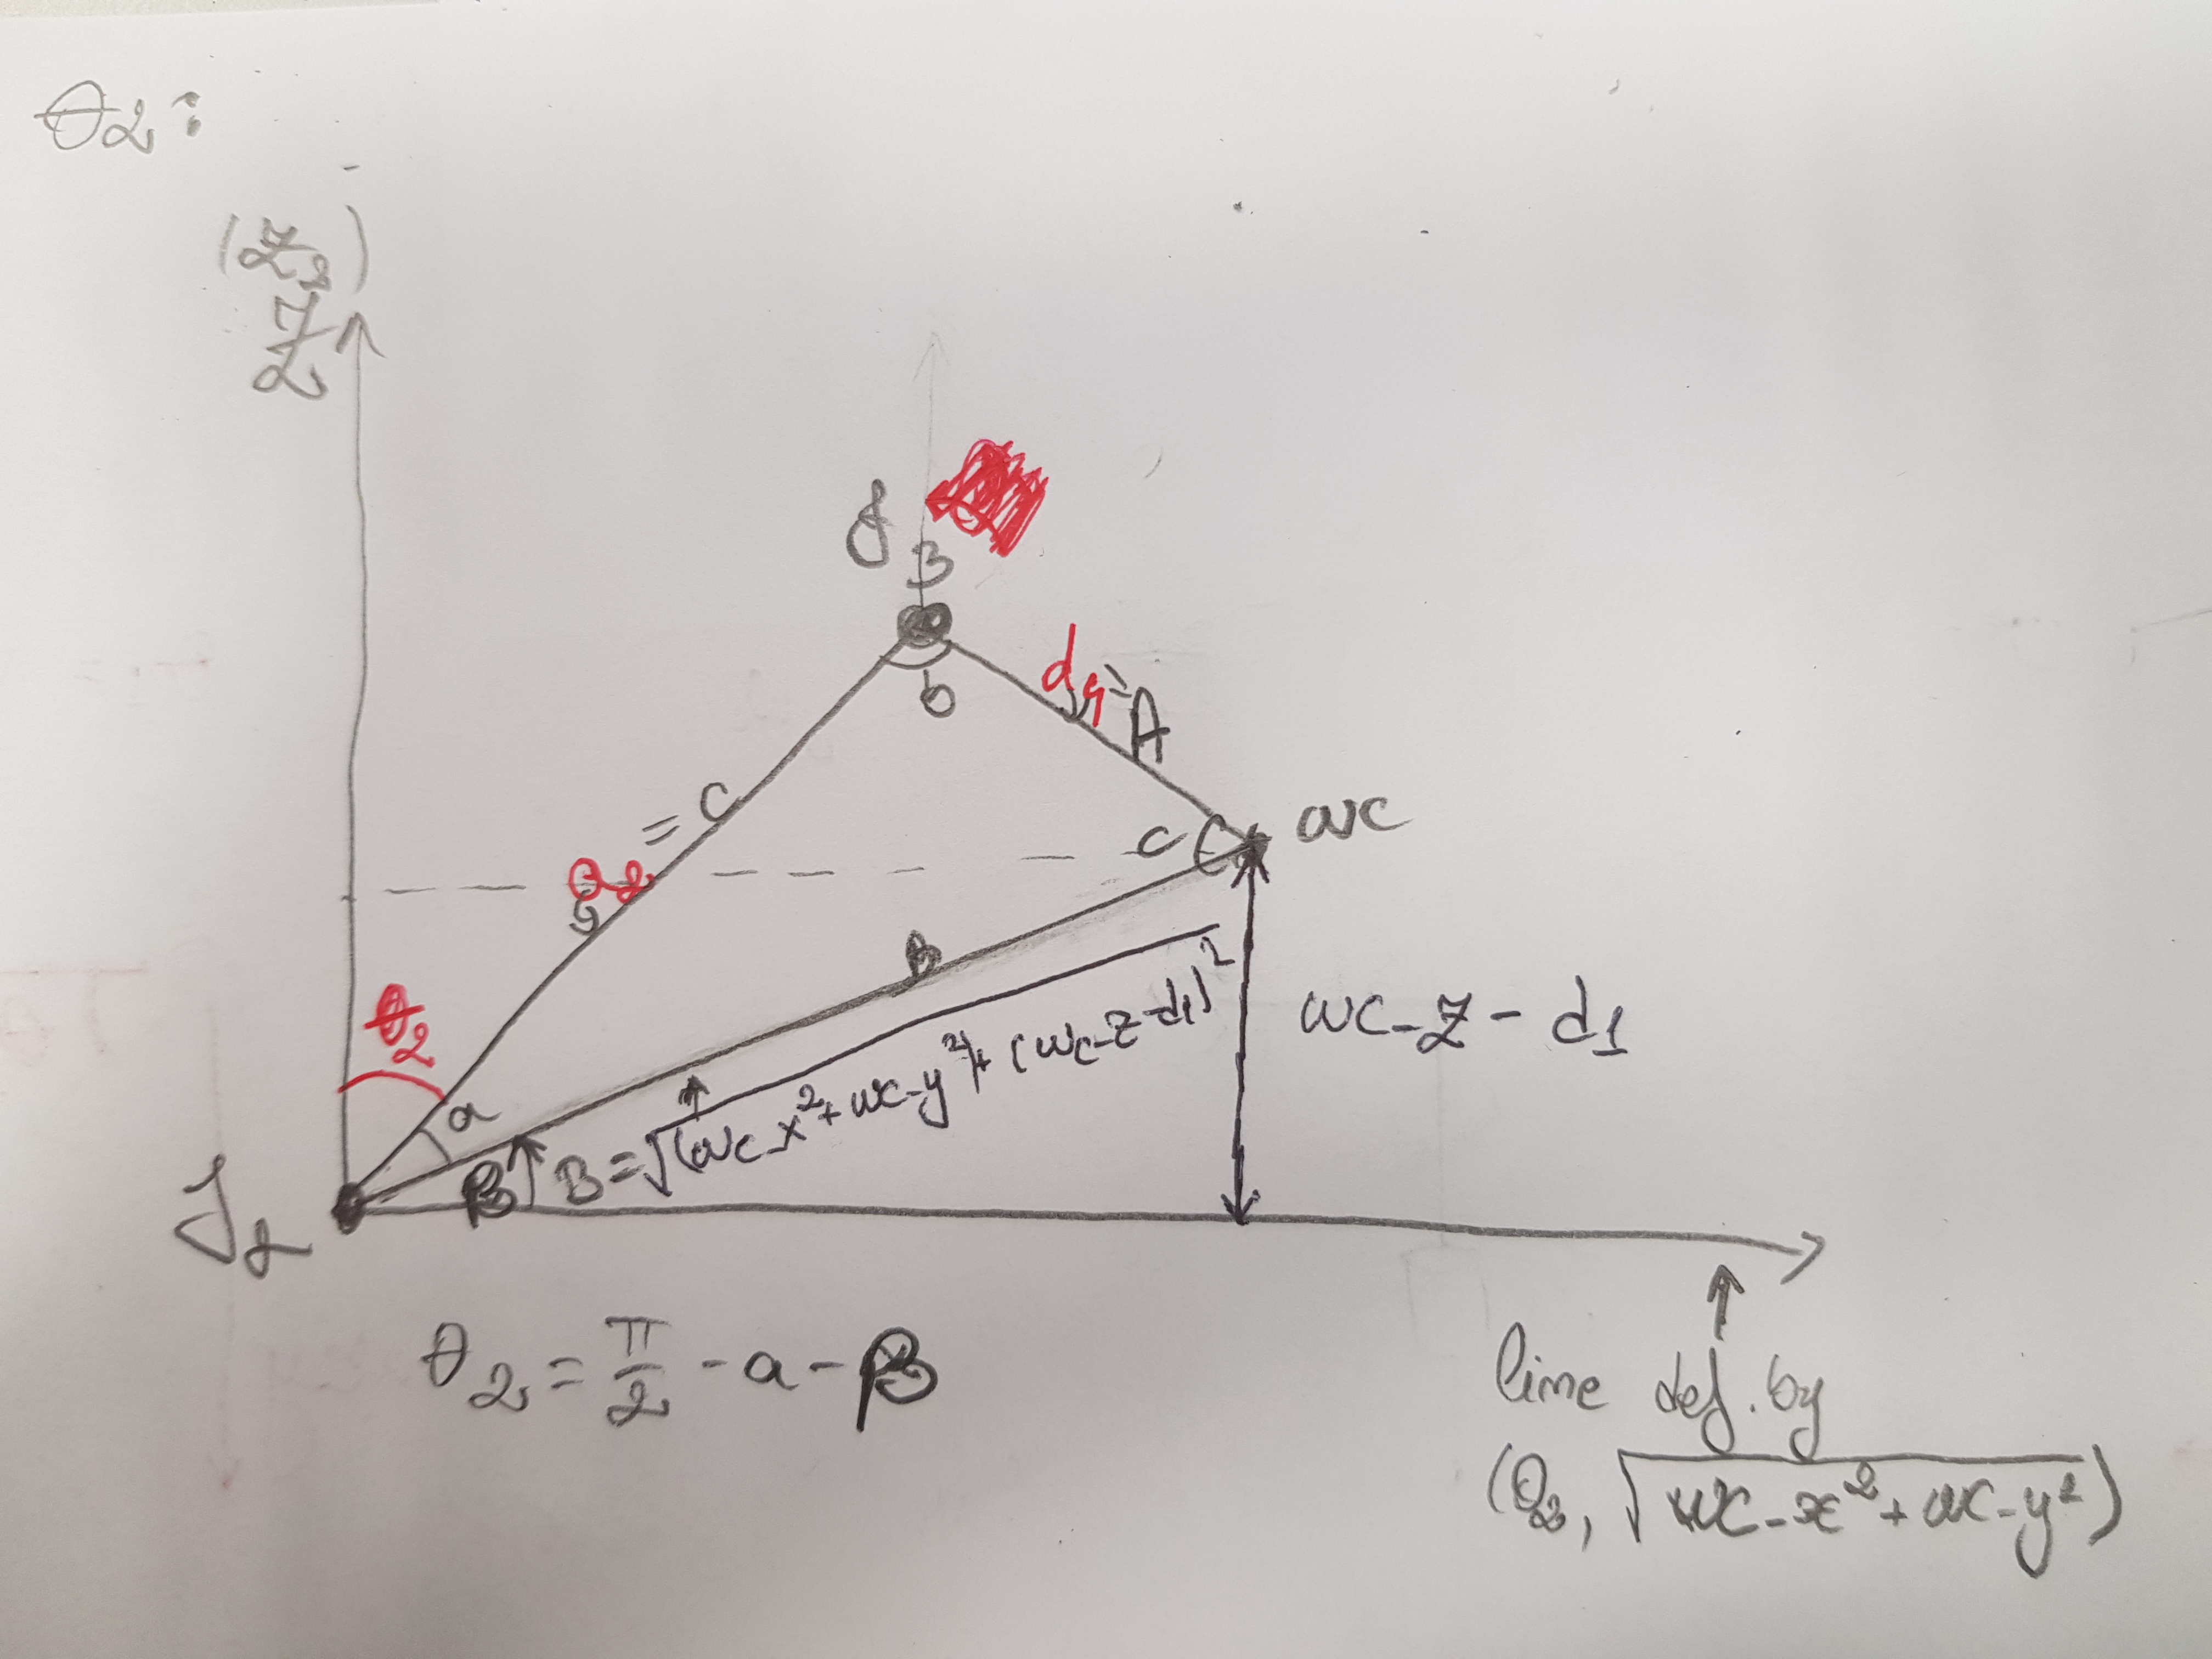 θ2 :
(Z2)
Z
J
3
b
d4 = A
= C
a2
wc
c
B
wc_z - d1
θ2
a
β
B = √(wc_x² + wc_y²) + (wc_z - d1)²
J2
θ2 = π/2 - a - β
line def. by
(O2, √wc_x² + wc_y²)